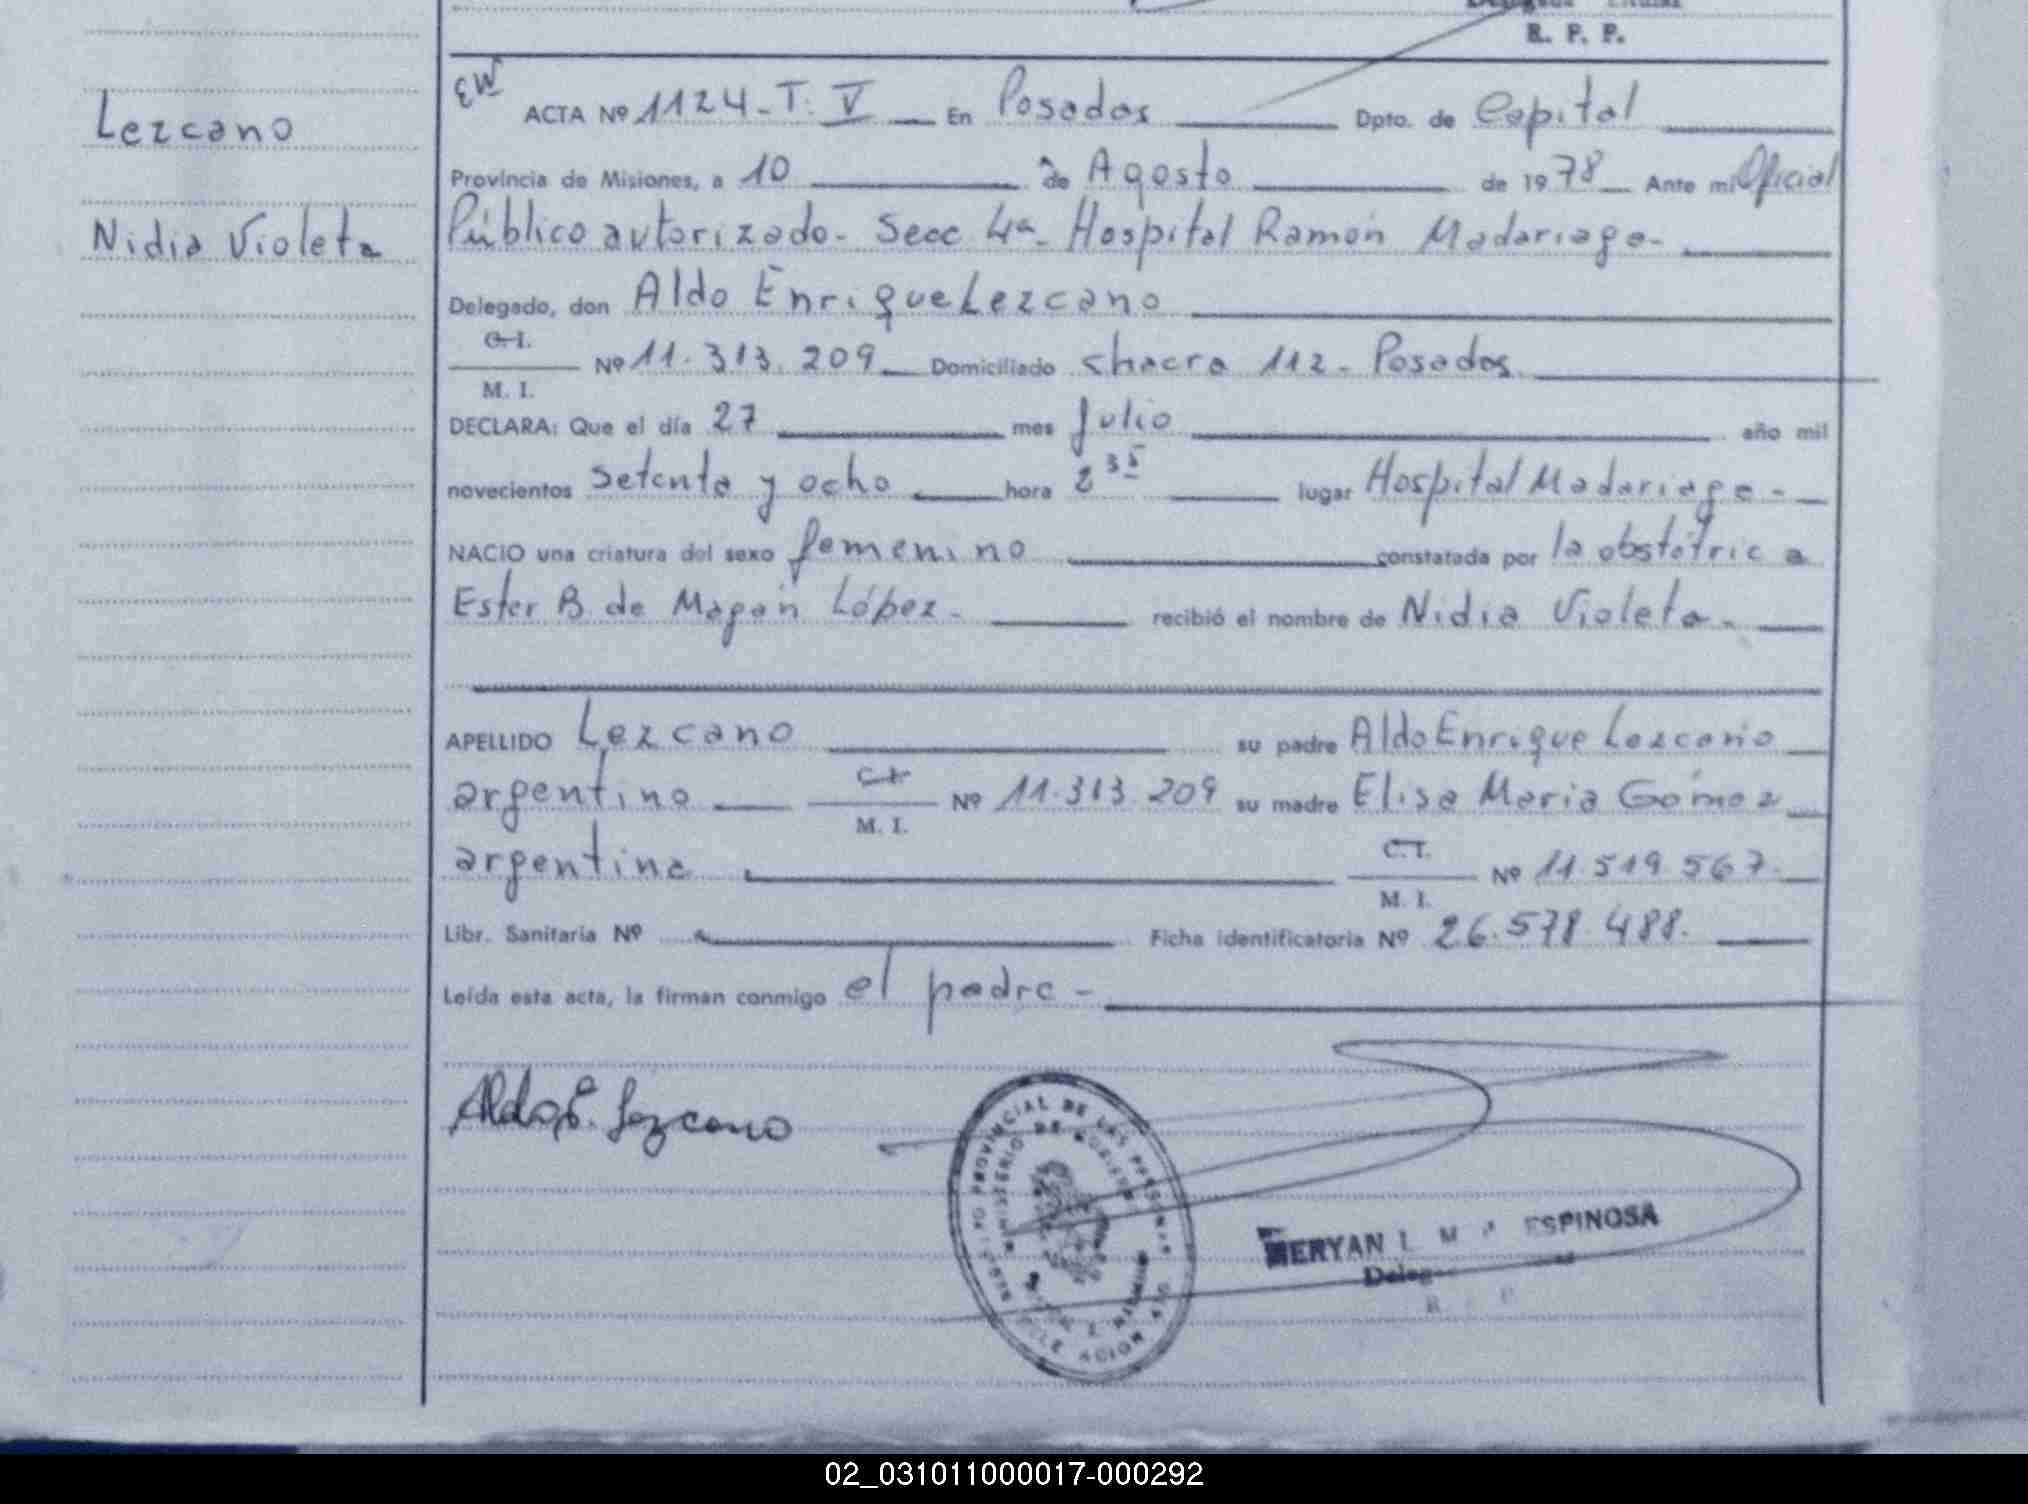 R. P. P.
Lezcano
Nidia Violeta
EW
ACTA Nº 1124-T. V En Posadas Dpto. de Capital
Provincia de Misiones, a 10 de Agosto de 1978 Ante mi Oficial
Público autorizado- Secc 4a- Hospital Ramón Madariaga-
Delegado, don Aldo Enrique Lezcano
C. I.
M. I.
Nº 11.313.209 Domiciliado chacra 112- Posadas
DECLARA: Que el día 27 mes julio año mil
novecientos setenta y ocho hora 2 35 lugar Hospital Madariaga-
NACIO una criatura del sexo femenino constatada por la obstétrica
Ester B. de Magan López- recibió el nombre de Nidia Violeta-
APELLIDO Lezcano su padre Aldo Enrique Lezcano
argentino C. I. M. I. Nº 11.313.209 su madre Elisa Maria Gómez
argentina C. I. M. I. Nº 11.519.567.
Libr. Sanitaria Nº Ficha identificatoria Nº 26.578.488.
Leída esta acta, la firman conmigo el padre-
Aldo E. Lezcano
PROVINCIAL DE LAS PERSONAS
MINISTERIO DE GOBIERNO
ESPINOSA
02_031011000017-000292